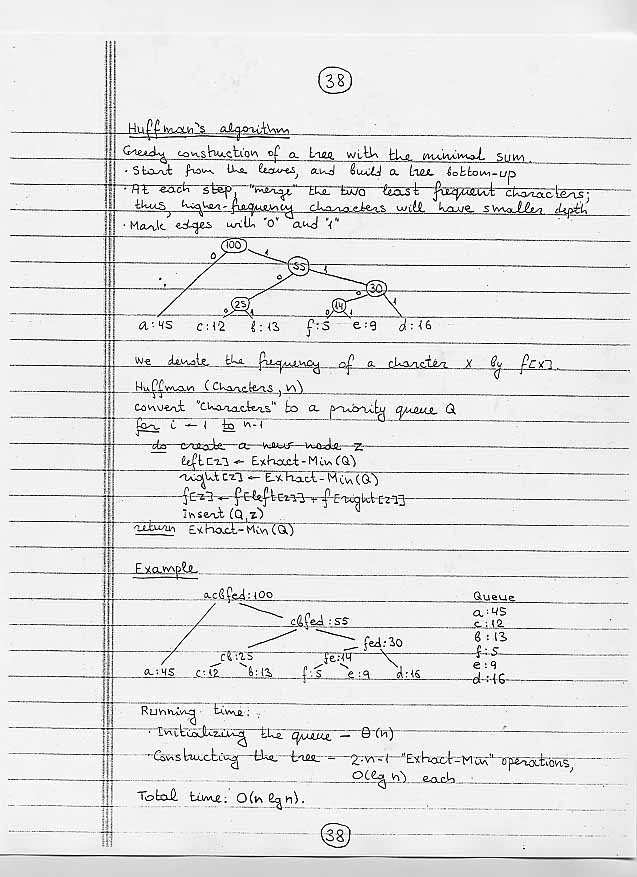 38
Huffman's algorithm
Greedy construction of a tree with the minimal sum.
· Start from the leaves, and build a tree bottom-up
· At each step, "merge" the two least frequent characters;
thus, higher-frequency characters will have smaller depth
· Mark edges with "0" and "1"
100
0 1
55
0 1
30
25 0 1
14
0 1 0 1
a:45 c:12 b:13 f:5 e:9 d:16
We denote the frequency of a charcter x by f[x].
Huffman (Charcters, n)
convert "Characters" to a priority queue Q
for i ← 1 to n-1
do create a new node z
left[z] ← Extract-Min(Q)
right[z] ← Extract-Min(Q)
f[z] ← f[left[z]] + f[right[z]]
Insert (Q, z)
return Extract-Min(Q)
Example
acbfed:100 Queue
a:45
cbfed:55 c:12
b:13
fed:30 f:5
cb:25 fe:14 e:9
a:45 c:12 b:13 f:5 e:9 d:16 d:16
Running time:
· Initializing the queue – Θ(n)
· Constructing the tree – 2·n-1 "Extract-Min" operations,
O(lg n) each
Total time: O(n lg n).
38